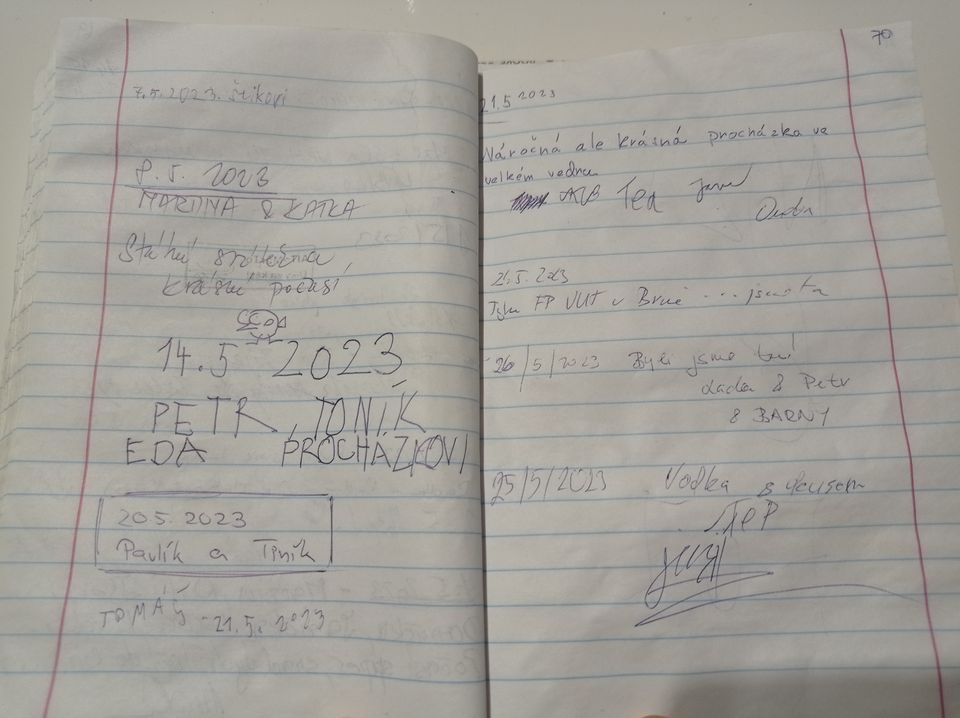 7.5.2023. Štikovi
8.5. 2023
MARTINA & KATKA
krásné počasí
14.5 2023
PETR, TONÍK
EDA PROCHÁZKOVI
20.5. 2023
Pavlík a Tiník
TOMÁŠ -21.5. 2023
70
21.5 2023
Náročná ale krásná procházka ve
velkém vedru
Tea
21.5. 2023
FP VUT v Brně ... jsme tu
26/5/2023 Byli jsme tu!
Lada & Petr
& BARNY
25/5/2023 Vodka s